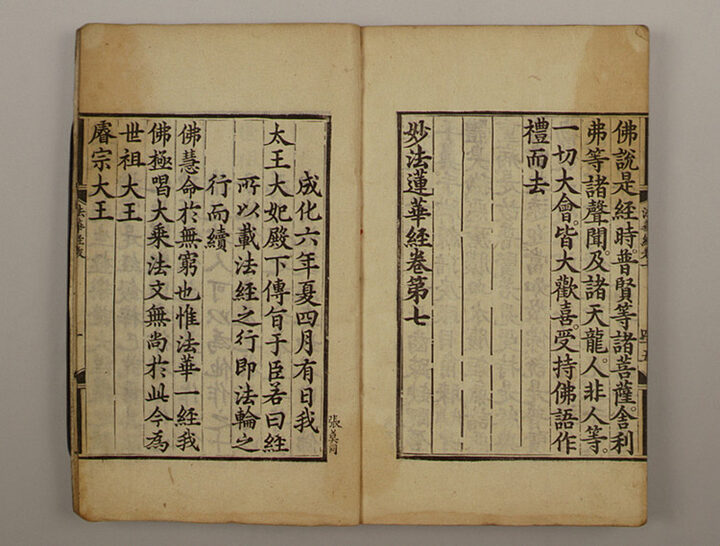 佛說是經時。普賢等諸菩薩。舍利
弗等諸聲聞。及諸天龍。人非人等。
一切大會。皆大歡喜。受持佛語作
禮而去
妙法蓮華經卷第七
成化六年夏四月有日我
太王大妃殿下傳旨于臣若曰經
所以載法經之行即法輪之
行而續
佛慧命於無窮也惟法華一經我
佛極唱大乘法文無尚於此今爲
世祖大王
睿宗大王
法華經跋